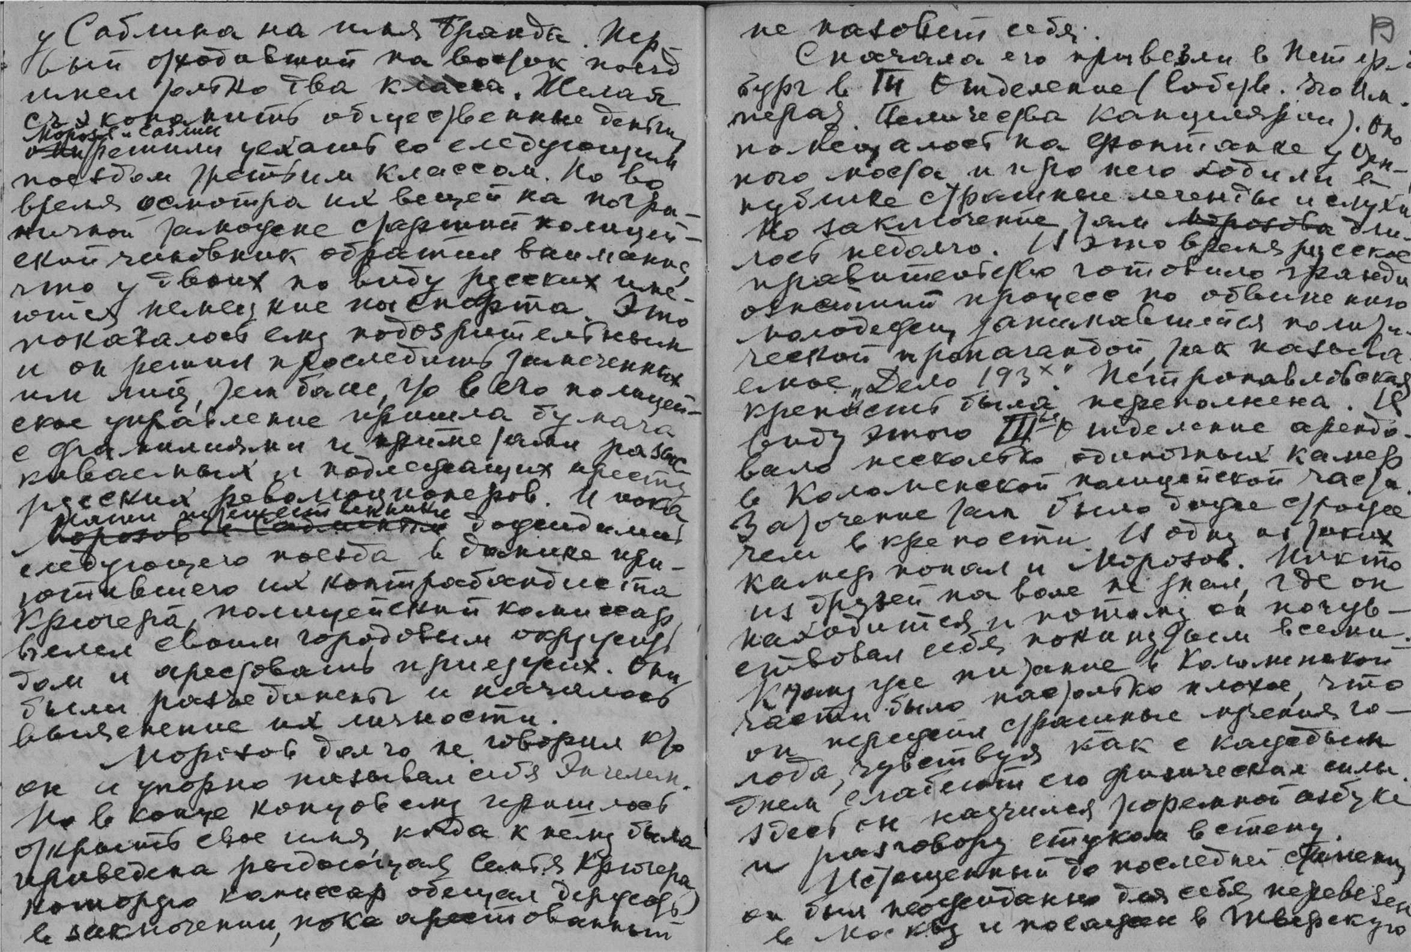 у Саблина на имя Бранда. Пер
вый отходивший на восток поезд
имел только два класса. Желая
съэкономить общественные деньги,
Мороз. и Саблин
они решили уехать со следующим
поездом третьим классом. Но во
время осмотра их вещей на погра-
ничной таможне старший полицей-
ский чиновник обратил внимание,
что у двоих по виду русских име-
ются немецкие паспорта. Это
показалось ему подозрительным
и он решил проследить замеченных
им лиц, тем более, что в его полицей-
ское управление пришла бумага
с фамилиями и приметами разыс
киваемых и подлежащих аресту
русских революционеров. И пока
наши путешественники
Морозов и Саблин дожидались
следующего поезда в домике при-
ютившего их контрабандиста
Крюгера, полицейский комиссар
велел своим городовым окружить
дом и арестовать приезжих. Они
были разъединены и началось
выяснение их личности.
Морозов долго не говорил кто
он и упорно называл себя Энгелем.
Но в конце концов ему пришлось
открыть свое имя, когда к нему была
приведена рыдающая семья Крюгера,
которую комиссар обещал держать
в заключении, пока арестованный
не назовет себя.
Сначала его привезли в Петер-
бург в III Отделение (Собств. Его Им-
перат. Величества Канцелярии). Оно
помещалось на Фонтанке у Цеп-
ного моста и про него ходили в
публике страшные легенды и слухи
Но заключение там Морозова дли-
лось недолго. В это время русское
правительство готовило гранди
ознейший процесс по обвинению
молодежи, занимавшейся полити-
ческой пропагандой, так называ
емое „Дело 193х". Петропавловская
крепость была переполнена. В
виду этого IIIье Отделение арендо-
вало несколько одиночных камер
в Коломенской полицейской части.
Заточение там было даже строже
чем в крепости. В одну из таких
камер попал и Морозов. Никто
из друзей на воле не знал, где он
находится и потому он почув-
ствовал себя покинутым всеми.
К тому же питание в Коломенской
части было настолько плохое, что
он терпел страшные мучения го-
лода, чувствуя как с каждым
днем слабеют его физические силы.
Здесь он научился тюремной азбуке
и разговору стуком в стену.
Истощенный до последней степени,
он был неожиданно для себя перевезен
в Москву и посажен в Тверскую